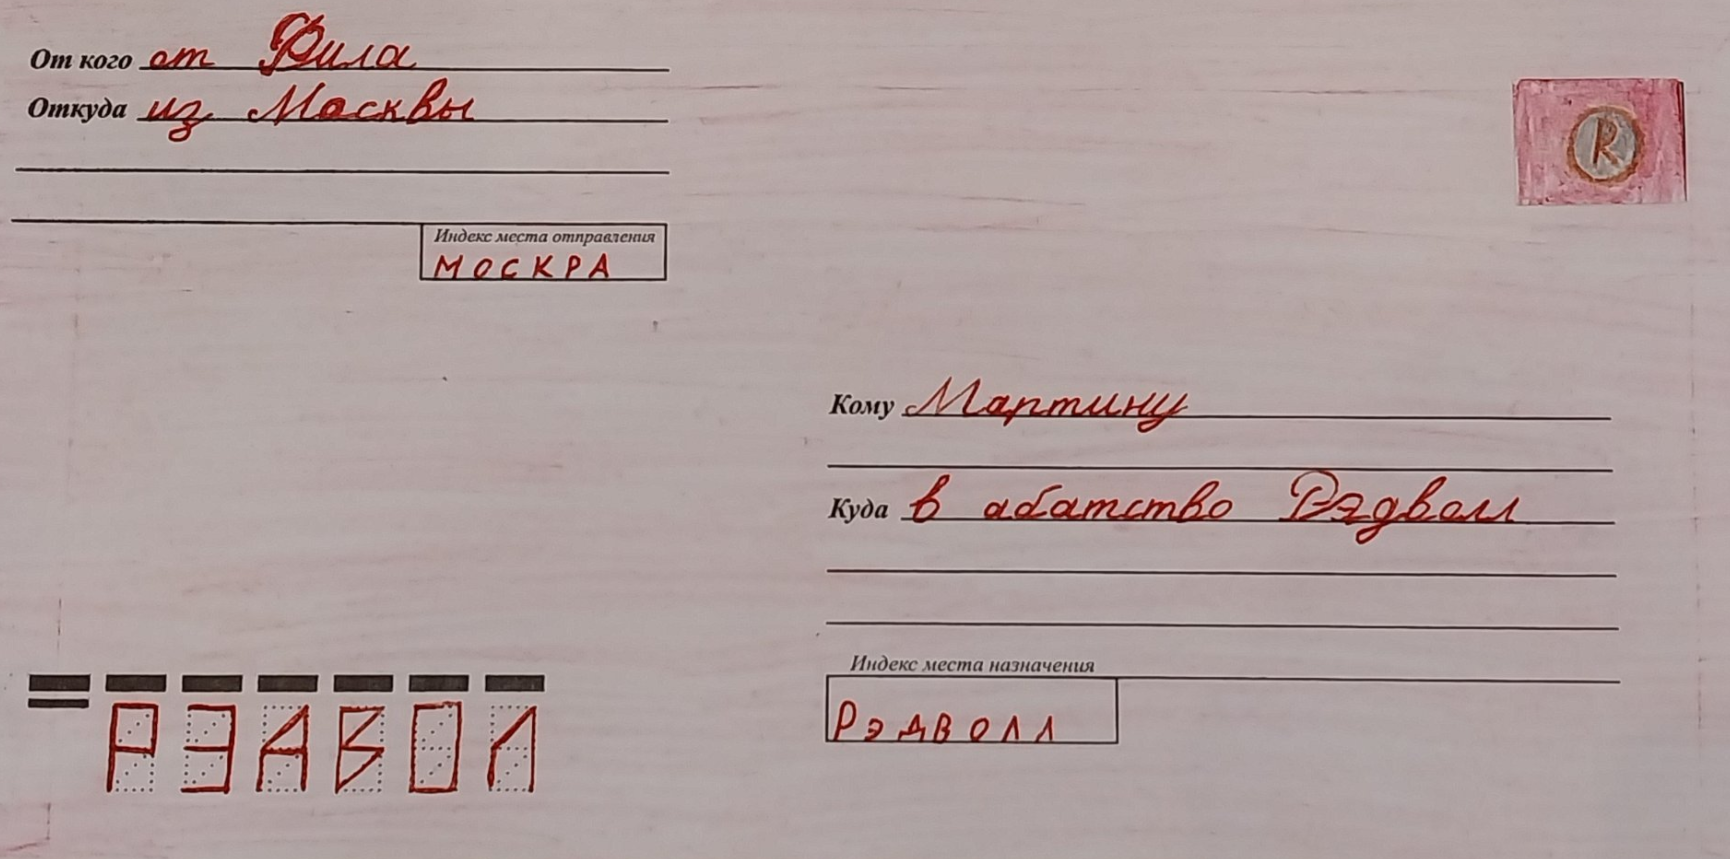 От кого от Фила
Откуда из Москвы
Индекс места отправления
МОСКРА
R
Кому Мартину
Куда в абатство Рэдволл
Индекс места назначения
РэдВОЛЛ
РЭАВОЛ